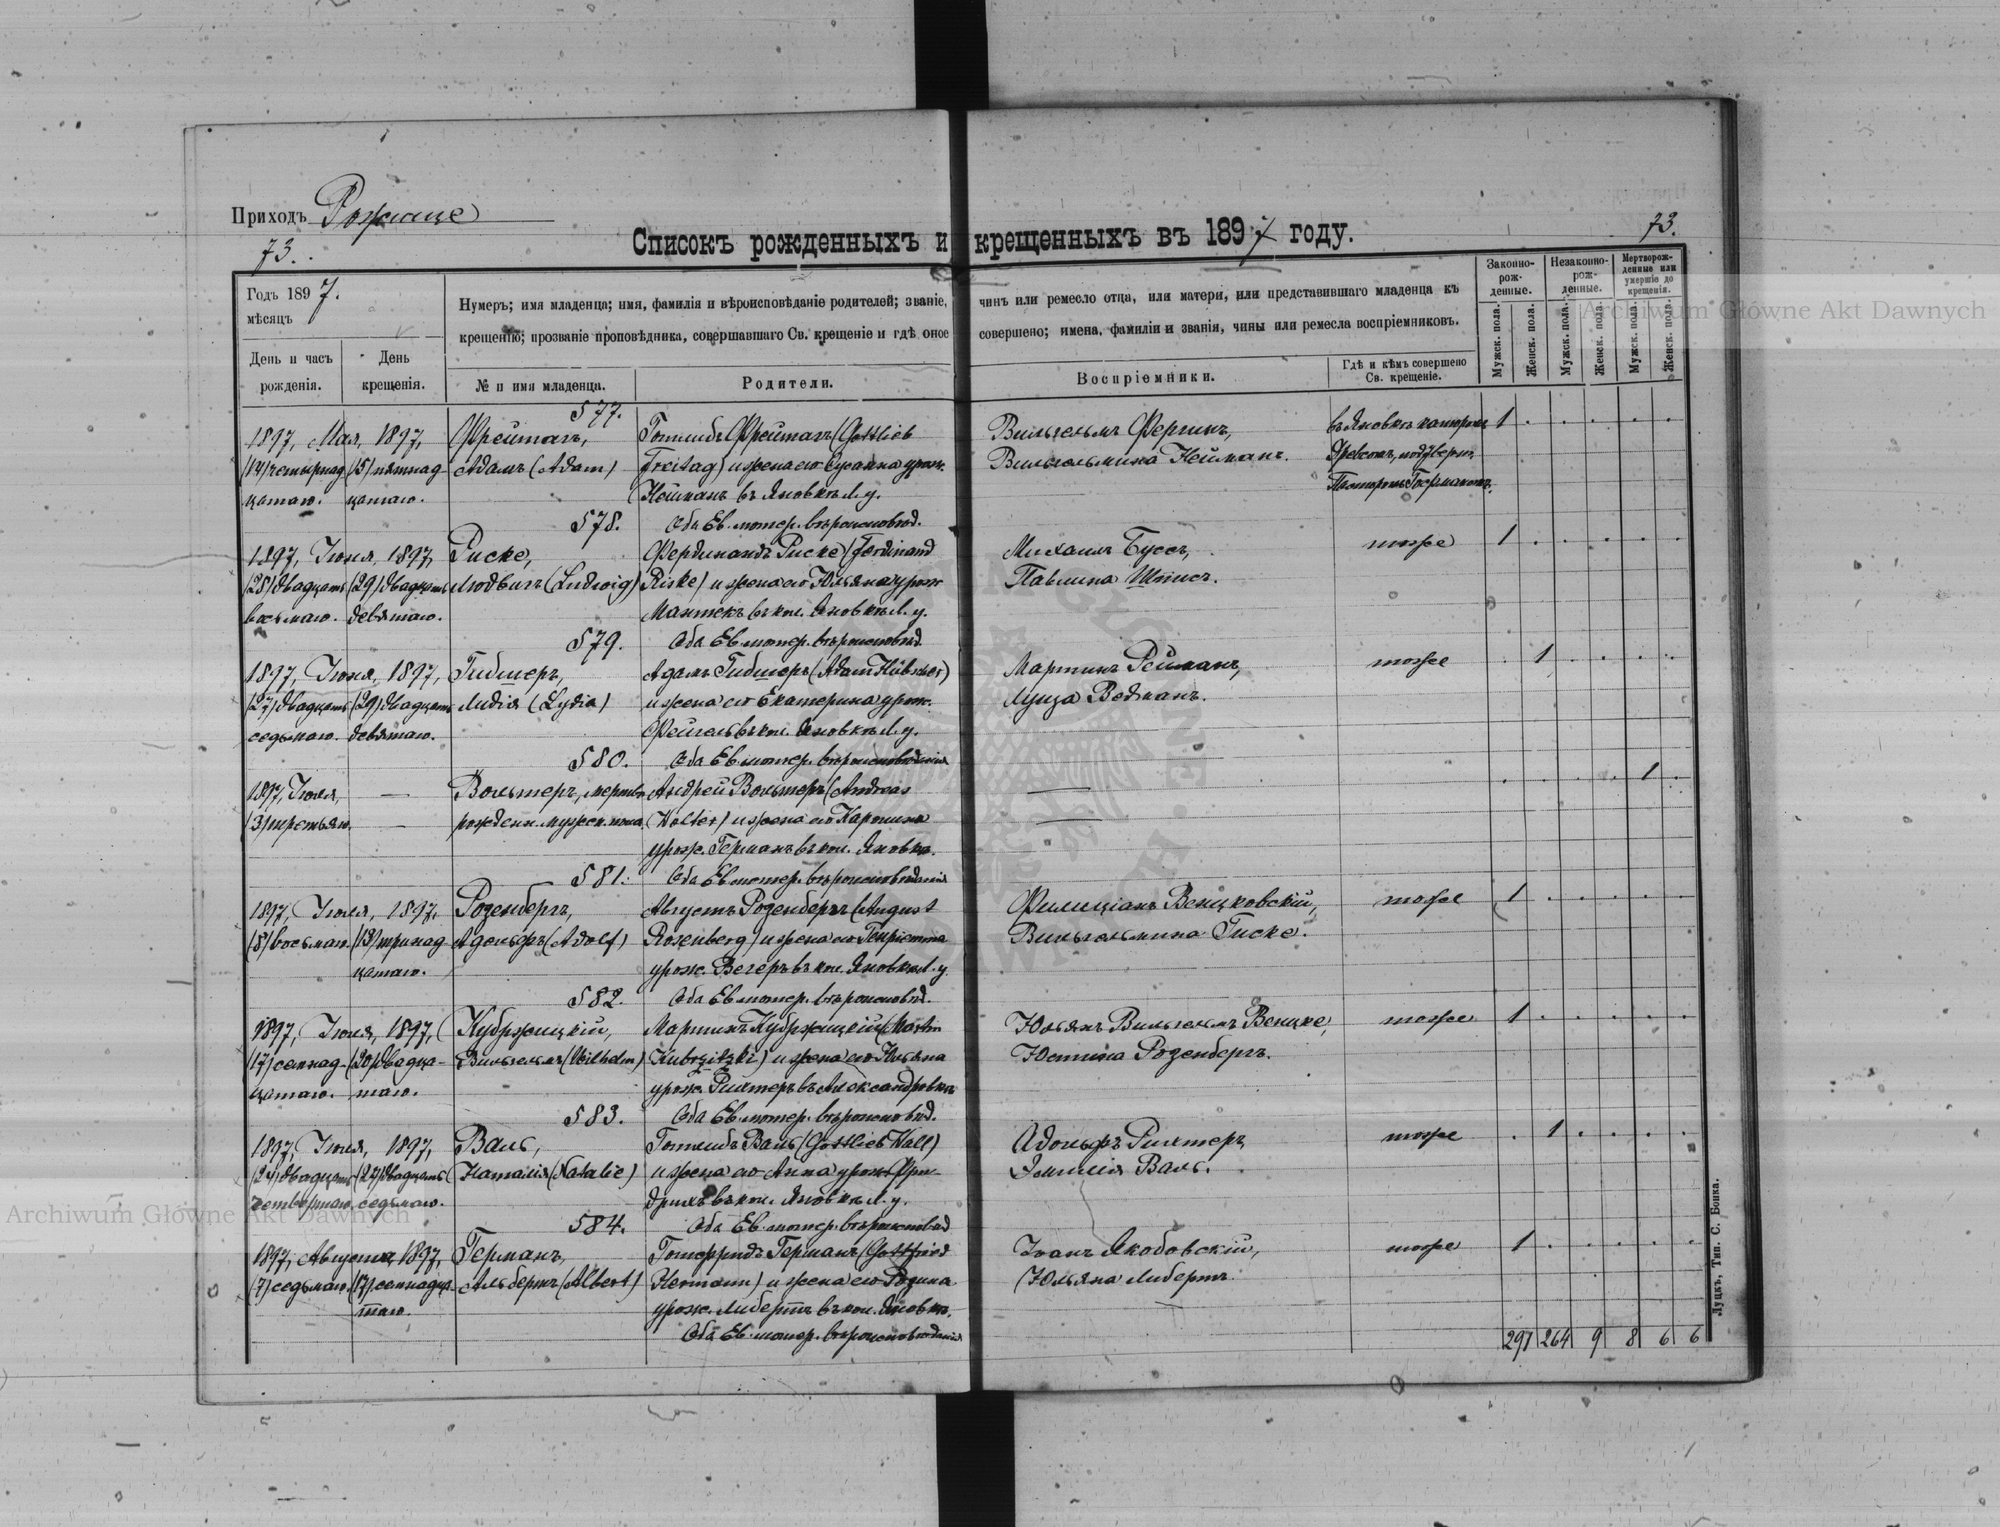 Приходъ Рожище
73.
Списокъ рожденныхъ и крещенныхъ въ 1897 году.
73.
Годъ 1897.
мѣсяцъ
День и часъ рожденія.
День крещенія.
Нумеръ; имя младенца; имя, фамилія и вѣроисповѣданіе родителей; званіе, чинъ или ремесло отца, или матери, или представившаго младенца къ
крещенію; прозваніе проповѣдника, совершавшаго Св. крещеніе и гдѣ оное совершено; имена, фамиліи и званія, чины или ремесла воспріемниковъ.
№ и имя младенца.
Родители.
Воспріемники.
Гдѣ и кѣмъ совершено Св. крещеніе.
Законно-рож-денные.
Незаконно-рож-денные.
Мертворож-денные или умершіе до крещенія.
Мужск. пола.
Женск. пола.
Мужск. пола.
Женск. пола.
Мужск. пола.
Женск. пола.
577.
1897, Мая, 1897, Фрейтагъ, Готлибъ Фрейтагъ (Gottlieb Вильгельмъ Фергинъ, въ Яновкѣ 1
(14) четырнад (15) пятнад Адамъ (Adam) Freitag) и жена его Сусанна урож. Вильгельмина Нейманъ.
цатаго. цатаго. Нейманъ въ Яновкѣ Л. у. Пасторомъ
578. Оба Ев. лютер. вѣроисповѣд.
1897, Іюня, 1897, Риске, Фердинандъ Риске (Ferdinand Михаилъ Буссъ, тоже 1
(28) двадцать (29) двадцать Людвигъ (Ludwig) Riske) и жена его Юльяна урож Павлина
восьмаго. девятаго. Мантекъ въ кол. Яновкѣ Л. у.
579. Оба Ев. лютер. вѣроисповѣд.
1897, Іюня, 1897, Гибнеръ, Адамъ Гибнеръ (Adam Hübner) Мартинъ Рейманъ, тоже 1
(27) двадцать (29) двадцать Лидія (Lydia) и жена его Екатерина урож. Луиза Ведманъ.
седьмаго. девятаго. Фейгель въ кол. Яновкѣ Л. у.
580. Оба Ев. лютер. вѣроисповѣданія
1897, Іюля, — Вольтеръ, мертво Андрей Вольтеръ (Andreas — 1
(3) третьяго. — рожден. мужск. пола. Wolter) и жена его Каролина —
урож. Германъ въ кол. Яновка.
581. Оба Ев. лютер. вѣроисповѣданія
1897, Іюля, 1897, Розенбергъ, Августъ Розенбергъ (August Филиціанъ Венцковскій, тоже 1
(8) восьмаго (13) тринад Адольфъ (Adolf) Rosenberg) и жена его Генріетта Вильгельмина Гиске.
цатаго. урож. Вегеръ въ кол. Яновкѣ Л. у.
582. Оба Ев. лютер. вѣроисповѣд.
1897, Іюля, 1897, Кубржицкій, Мартинъ Кубржицкій (Martin Юльянъ Вильгельмъ Венцке, тоже 1
(17) семнад- (20) двадца- Вильгельмъ (Wilhelm) Kubrzitzki) и жена его Юльяна Юстина Розенбергъ.
цатаго. таго. урож. Рихтеръ въ Александровкѣ
583. Оба Ев. лютер. вѣроисповѣд.
1897, Іюля, 1897, Валь, Готлибъ Валь (Gottlieb Wall) Адольфъ Рихтеръ, тоже 1
(24) двадцать (27) двадцать Наталія (Natalie) и жена его Анна урож. Фри- Эмилія Валь.
четвертаго. седьмаго. дрихъ въ кол. Яновкѣ Л. у.
584. Оба Ев. лютер. вѣроисповѣд
1897, Августа, 1897, Германъ, Готфридъ Германъ (Gottfried Іванъ Якобовскій, тоже 1
(7) седьмаго. (17) семнадца- Альбертъ (Albert) Hermann) и жена его Розина Юльяна Либертъ
таго. урож. Либертъ въ кол. Яновкѣ.
Оба Ев. лютер. вѣроисповѣданія
297 264 9 8 6 6
Луцкъ, Тип. С. Бонка.
Archiwum Główne Akt Dawnych
Archiwum Główne Akt Dawnych